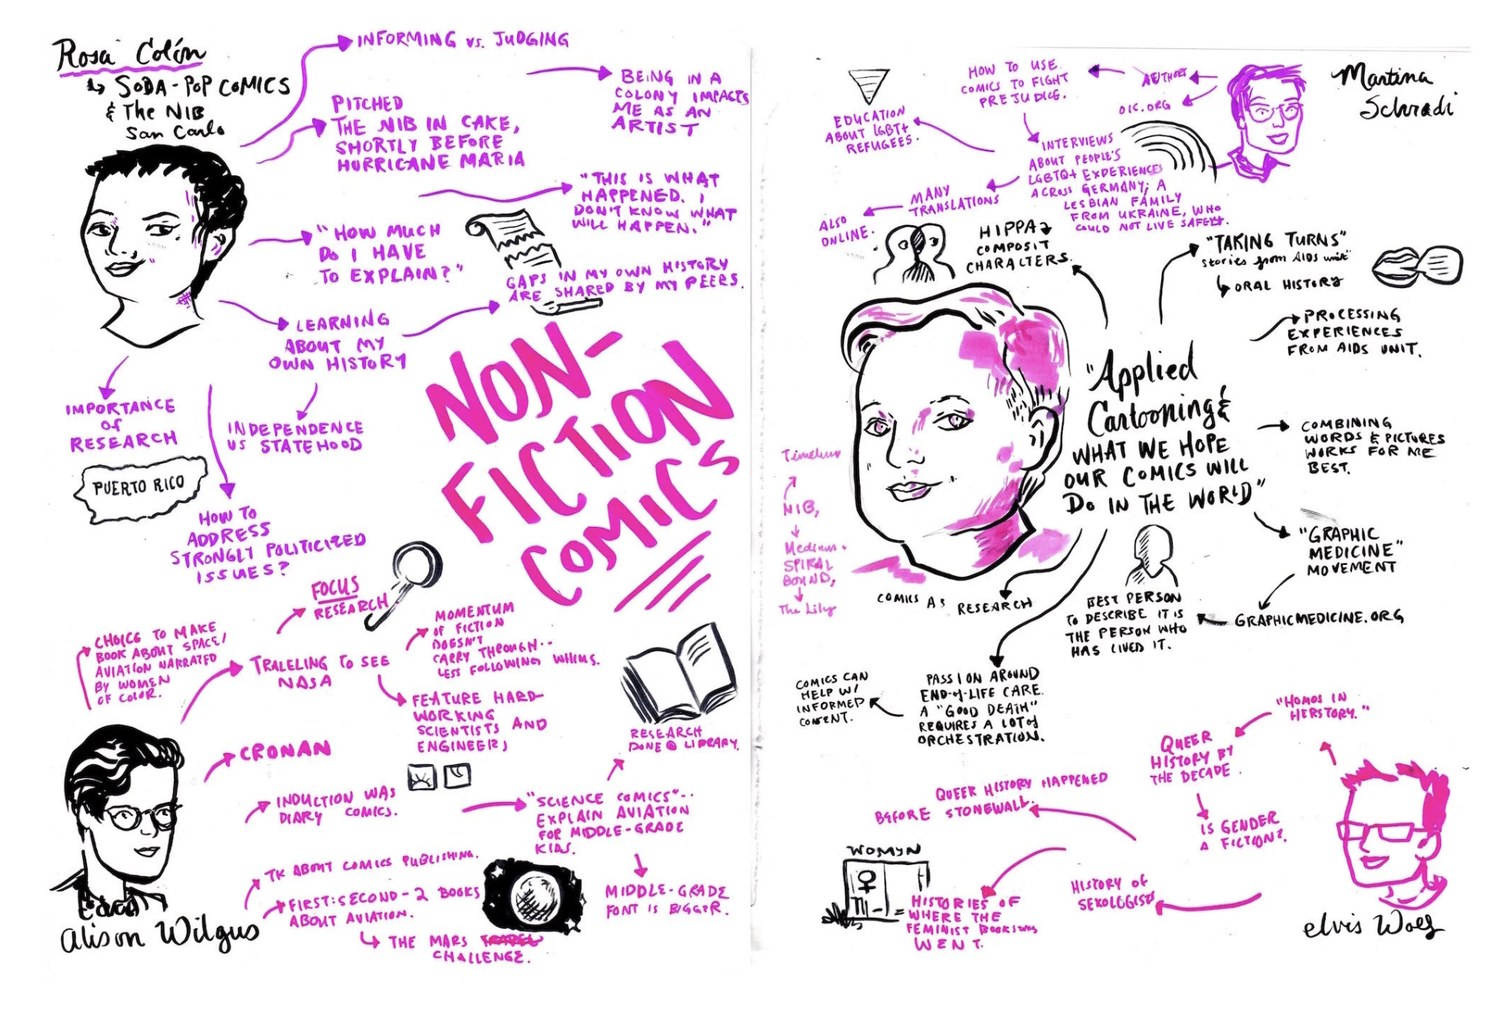 Rosa Colón
SODA-POP COMICS
& THE NIB
San Carlo
INFORMING vs. JUDGING
PITCHED
THE NIB IN CAKE,
SHORTLY BEFORE
HURRICANE MARIA
BEING IN A
COLONY IMPACTS
ME AS AN
ARTIST
"THIS IS WHAT
HAPPENED. I
DON'T KNOW WHAT
WILL HAPPEN."
"HOW MUCH
DO I HAVE
TO EXPLAIN?"
GAPS IN MY OWN HISTORY
ARE SHARED BY MY PEERS.
LEARNING
ABOUT MY
OWN HISTORY
IMPORTANCE
of
RESEARCH
INDEPENDENCE
VS STATEHOOD
PUERTO RICO
HOW TO
ADDRESS
STRONGLY POLITICIZED
ISSUES?
NON-
FICTION
COMICS
FOCUS
RESEARCH
CHOICE TO MAKE
BOOK ABOUT SPACE/
AVIATION NARRATED
BY WOMEN
OF COLOR.
TRALELING TO SEE
NASA
MOMENTUM
OF FICTION
DOESN'T
CARRY THROUGH..
LESS FOLLOWING WHIMS.
FEATURE HARD-
WORKING
SCIENTISTS AND
ENGINEERS
RESEARCH
DONE @ LIBRARY.
CRONAN
INDUCTION WAS
DIARY COMICS.
"SCIENCE COMICS"..
EXPLAIN AVIATION
FOR MIDDLE-GRADE
KIDS.
TK ABOUT COMICS PUBLISHING.
FIRST:SECOND-2 BOOKS
ABOUT AVIATION.
THE MARS
CHALLENGE.
MIDDLE-GRADE
FONT IS BIGGER.
Alison Wilgus
Martina
Schradi
HOW TO USE
COMICS TO FIGHT
PREJUDICE.
OIC.ORG
EDUCATION
ABOUT LGBT+
REFUGEES.
INTERVIEWS
ABOUT PEOPLE'S
LGBTQ+ EXPERIENCES
ACROSS GERMANY; A
LESBIAN FAMILY
FROM UKRAINE, WHO
COULD NOT LIVE SAFELY.
MANY
TRANSLATIONS
ALSO
ONLINE.
HIPPAZ
COMPOSIT
CHARACTERS.
"TAKING TURNS"
stories from AIDS unit"
ORAL HISTORY
PROCESSING
EXPERIENCES
FROM AIDS UNIT.
"Applied
Cartooning &
WHAT WE HOPE
OUR COMICS WILL
DO IN THE WORLD"
COMBINING
WORDS & PICTURES
WORKS FOR ME
BEST.
"GRAPHIC
MEDICINE"
MOVEMENT
GRAPHICMEDICINE.ORG
BEST PERSON
TO DESCRIBE IT IS
THE PERSON WHO
HAS LIVED IT.
NIB,
Medium.
SPIRAL
BOUND,
The Lily
COMICS AS RESEARCH
PASSION AROUND
END-of-LIFE CARE.
A "GOOD DEATH"
REQUIRES A LOT of
ORCHESTRATION.
COMICS CAN
HELP W/
INFORMED
CONSENT.
"HOMOS IN
HERSTORY."
QUEER
HISTORY BY
THE DECADE.
IS GENDER
A FICTION?
QUEER HISTORY HAPPENED
BEFORE STONEWALL.
WOMYN
HISTORIES OF
WHERE THE
FEMINIST BOOKSTORES
WENT.
HISTORY of
SEXOLOGISTS
elvis Wolf